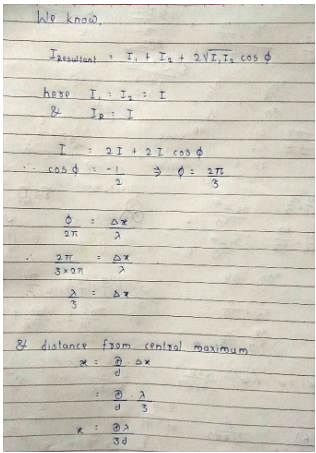 We know,
I Resultant = I₁ + I₂ + 2√I₁I₂ cos ϕ
here I₁ = I₂ = I
& I_R = I
I = 2I + 2I cos ϕ
∴ cos ϕ = -1/2 ⇒ ϕ = 2π/3
ϕ/2π = Δx/λ
∴ 2π/3×2π = Δx/λ
λ/3 = Δx
& distance from central maximum
x = D/d . Δx
= D/d . λ/3
x = Dλ/3d